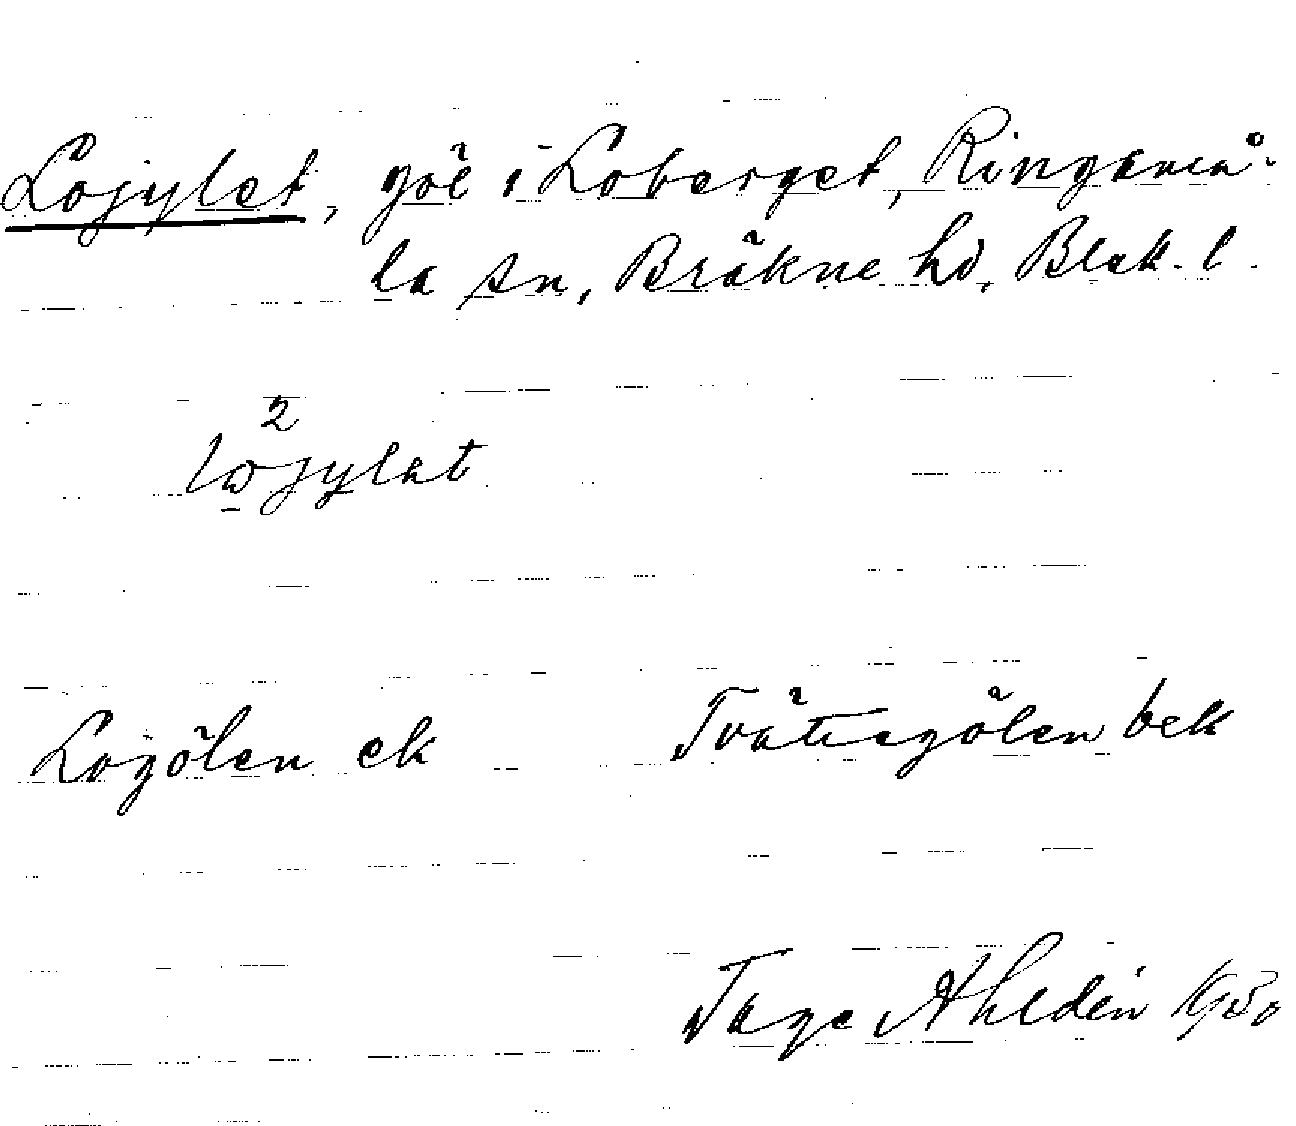 Lojylet, göl i Loberget, Ringamå-
la sn, Bräkne hd, Blek. l.
2
lojylat
Logölen ek Tvättegölen bek
Tage Ahldén 1930